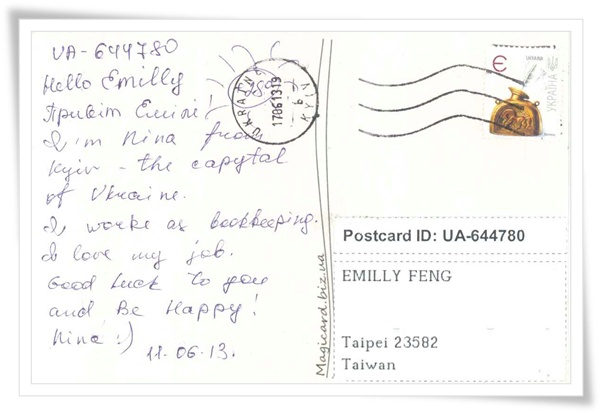 UA-644780
Hello Emilly
Привіт Емілі!
I'm Nina from
Kyiv - the capytal
of Ukraine.
I worke as bookkeeping.
I love my job.
Good Luck to you
and Be Happy!
Nina :)
11.06.13.
UKRAINE
17061319
KYIV
Magicard.biz.ua
Є
УКРАЇНА
Postcard ID: UA-644780
EMILLY FENG
Taipei 23582
Taiwan